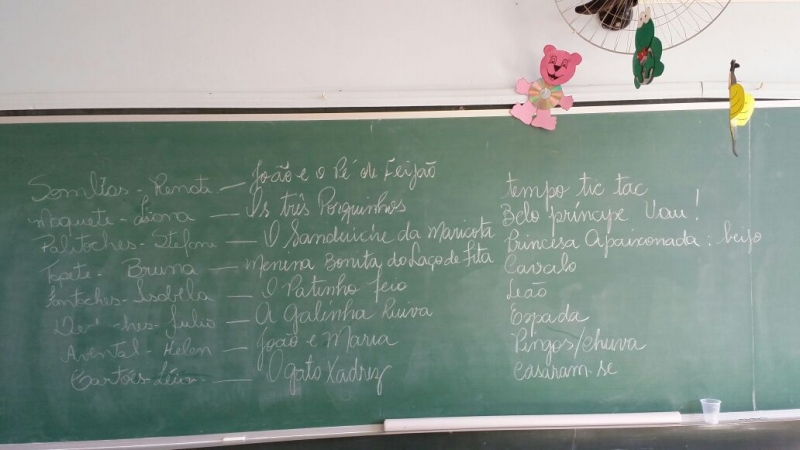 Sombras - Renata — João e o Pé de Feijão
Maquete - Liana — Os três Porquinhos
Palitoches - Stefani — O Sanduiche da Maricota
Tapete - Bruna — Menina Bonita do Laço de fita
Fantoches - Isabela — O Patinho feio
Julio — A galinha Ruiva
Avental - Helen — João e Maria
Cartões - Léia — O gato Xadrez
tempo tic tac
Belo príncipe Uau!
Princesa Apaixonada: beijo
Cavalo
Leão
Espada
Pingos/chuva
Casaram-se